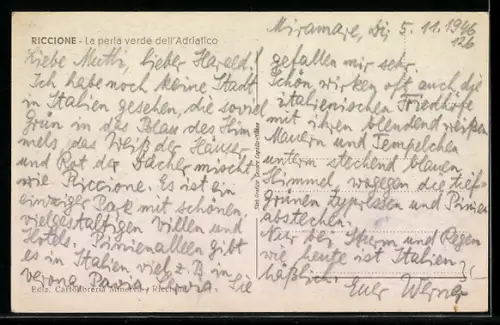 RICCIONE - La perla verde dell'Adriatico
Liebe Mutti, lieber Harald!
Ich habe noch keine Stadt
in Italien gesehen, die soviel
Grün in das Blau des Him-
mels, das Weiß der Häuser
und Rot der Dächer mischt,
wie Riccione. Es ist ein
einziger Park mit schönen,
vielgestaltigen Villen und
Hotels. Pinienalleen gibt
es in Italien viel, z. B. in
Verona, Pavia. Sie
Ediz. Cartolibreria Minerva, Riccione
Miramare, Di, 5. 11. 1946
126
gefallen mir sehr.
Schön wirken oft auch die
italienischen Friedhöfe
mit ihren blendend weißen
Mauern und Tempelchen
unterm stechend blauen
Himmel, wogegen die tief-
grünen Zypressen und Pinien
abstechen.
Nur bei Sturm und Regen
wie heute ist Italien
häßlich. Euer Werner